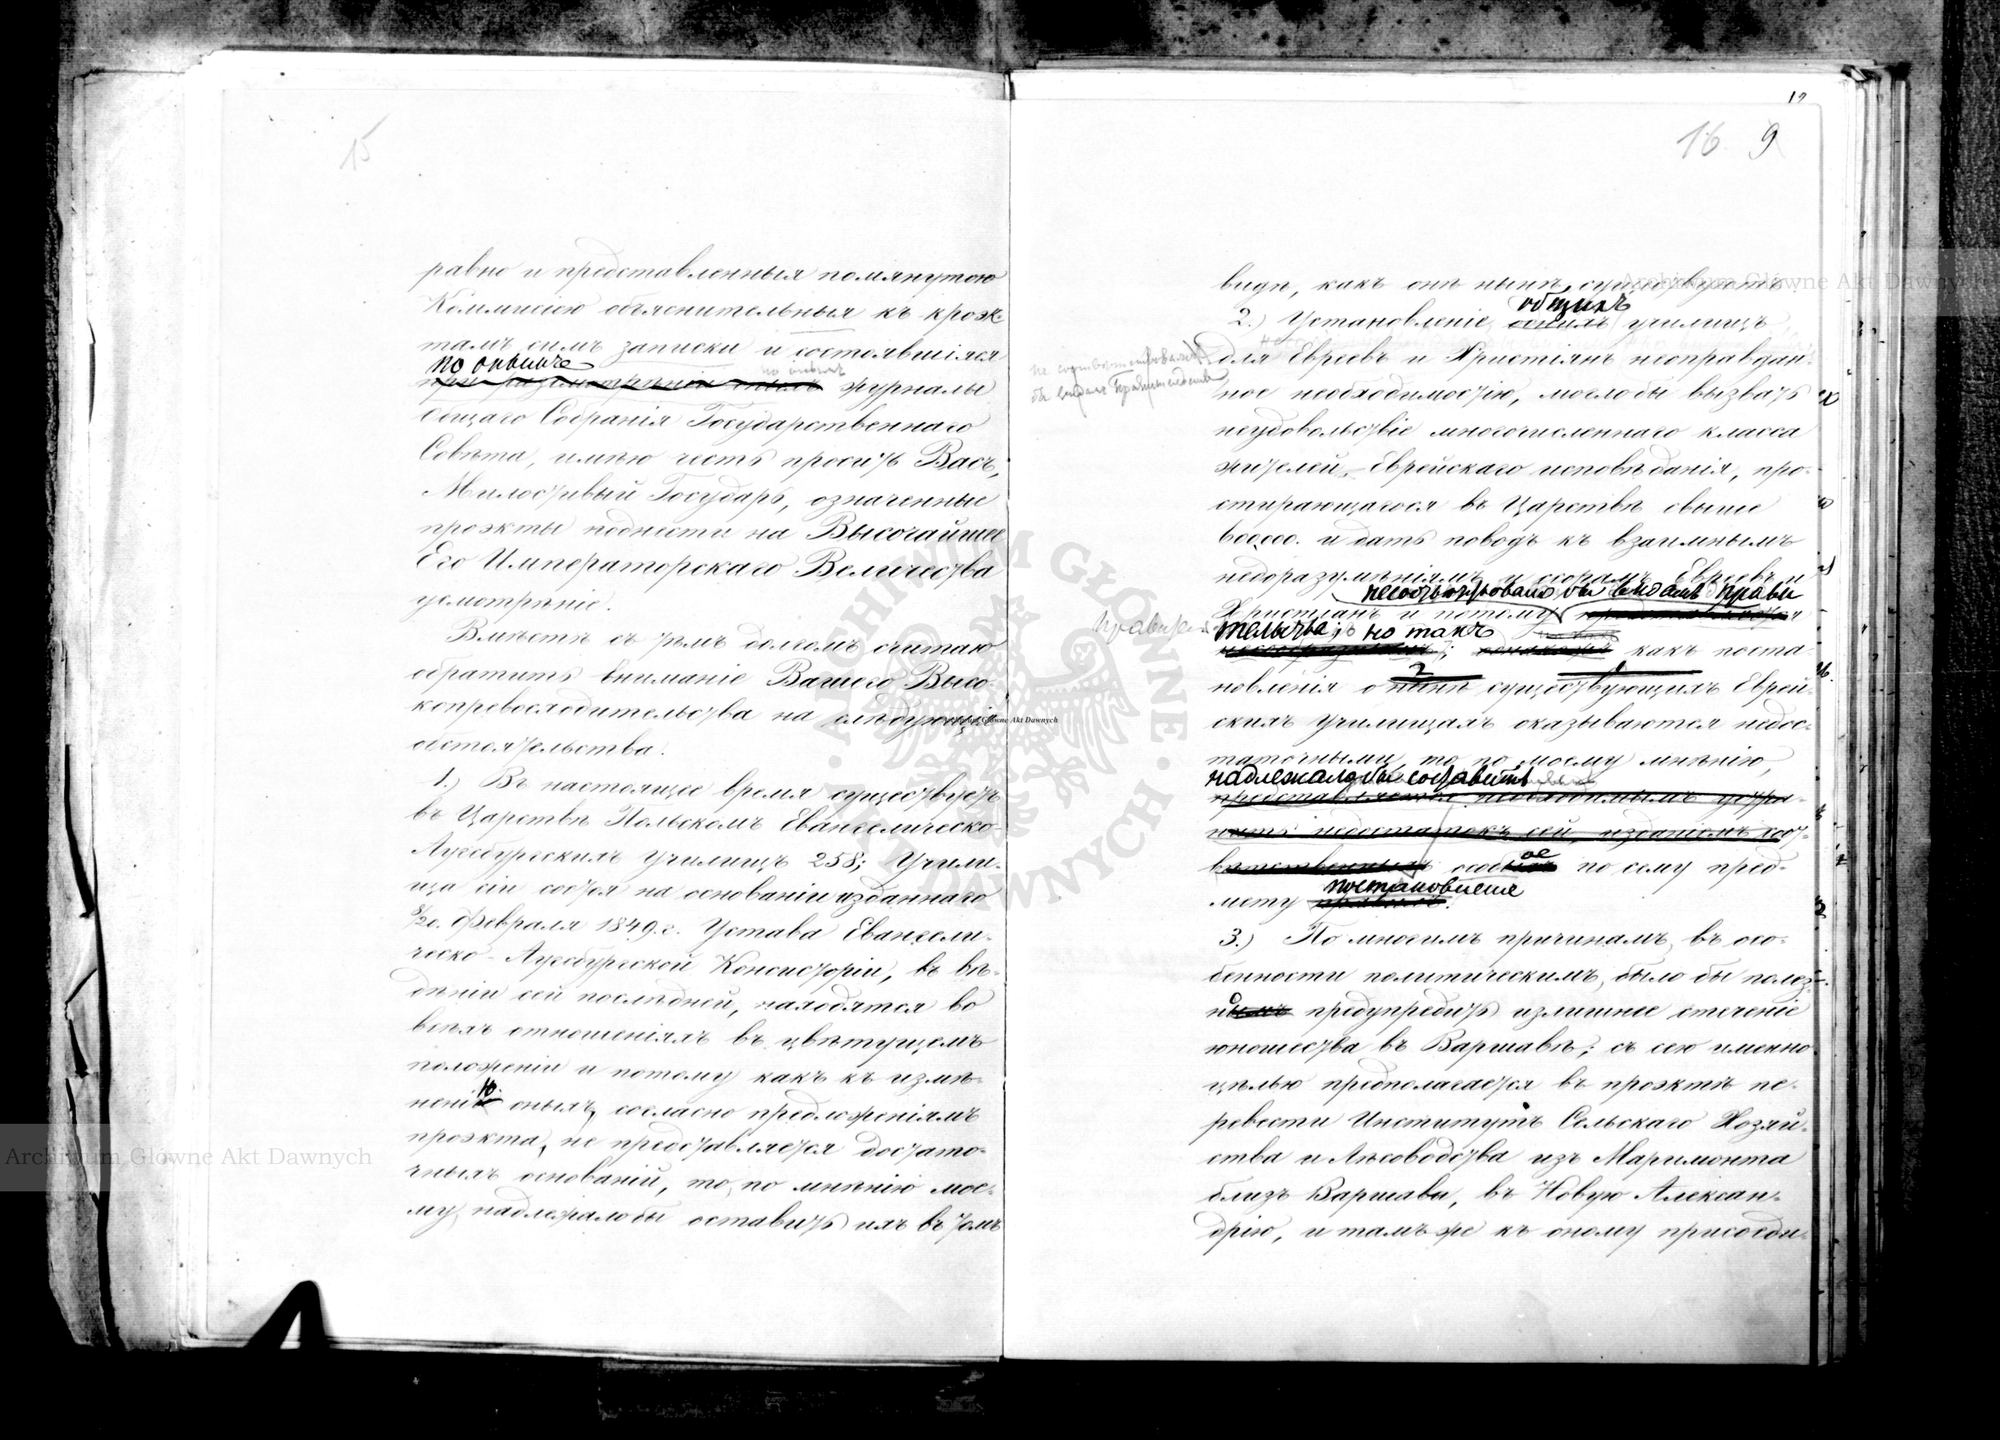 15
равно и представленныя помянутою
Коммисіею объяснительныя къ проэк-
тамъ симъ записки и состоявшіяся
по онымъ же
журналы
Общаго Собранія Государственнаго
Совѣта, имѣю честь просить Васъ,
Милостивый Государь, означенные
проэкты поднести на Высочайшее
Его Императорскаго Величества
усмотрѣніе.
Вмѣстѣ съ тѣмъ долгомъ считаю
обратить вниманіе Вашего Высо-
копревосходительства на слѣдующія
обстоятельства:
1.) Въ настоящее время существуетъ
въ Царствѣ Польскомъ Евангелическо-
Аугсбургскихъ Училищъ 258; Учили-
ща сіи состоя на основаніи изданнаго
8/20. Февраля 1849.г. Устава Евангели-
ческо-Аугсбургской Консисторіи, въ вѣ-
дѣніи сей послѣдней, находятся во
всѣхъ отношеніяхъ въ цвѣтущемъ
положеніи и потому какъ къ измѣ-
ненію оныхъ, согласно предложеніямъ
проэкта, не представляется достато-
чныхъ основаній, то, по мнѣнію мое-
му, надлежало бы оставить ихъ въ томъ
12
16 9
видѣ, какъ онѣ нынѣ существуютъ.
общихъ
2.) Установленіе училищъ
для Евреевъ и Христіянъ неоправдан-
ное необходимостію, могло бы вызвать
неудовольствіе многочисленнаго класса
жителей, Еврейскаго исповѣданія, про-
стирающагося въ Царствѣ свыше
600,000. и дать поводъ къ взаимнымъ
недоразумѣніямъ и ссорамъ Евреевъ и
несоотвѣтствовало бы видамъ прави
Христіянъ и потому
тельства; но такъ
какъ поста-
новленія о нынѣ существующихъ Еврей-
скихъ училищахъ оказываются недос-
таточными, то по моему мнѣнію,
надлежало бы составить
представляется необходимымъ устра-
нить недостатокъ сей, изданіемъ соот-
вѣтственныхъ особое по сему пред-
постановленіе
мету правилъ.
3.) По многимъ причинамъ, въ осо-
бенности политическимъ, было бы полез-
но предупредить излишнее стеченіе
юношества въ Варшавѣ; съ сею именно
цѣлью предполагается въ проэктѣ пе-
ревести Институтъ Сельскаго Хозяй-
ства и Лѣсоводства изъ Маримонта
близъ Варшавы, въ Новую Алексан-
дрію, и тамъ же къ оному присоеди-
Archiwum Główne Akt Dawnych